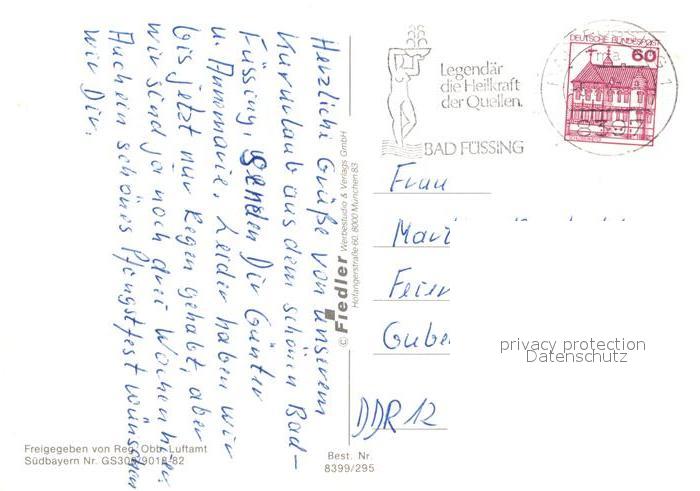 Herzliche Grüße von unserem
Kururlaub aus dem schönen Bad-
Füssing, senden Dir Günter
u. Annmarie. Leider haben wir
bis jetzt nur Regen gehabt, aber
wir sind ja noch drei Wochen hier.
Auch ein schönes Pfingstfest wünschen
wir Dir.
© Fiedler Werbestudio & Verlags GmbH
Hofangerstraße 60, 8000 München 83
Legendär
die Heilkraft
der Quellen.
BAD FÜSSING
DEUTSCHE BUNDESPOST
60
Frau
DDR 12
privacy protection
Datenschutz
Freigegeben von Reg. Obb. Luftamt
Südbayern Nr.
Best. Nr.
8399/295